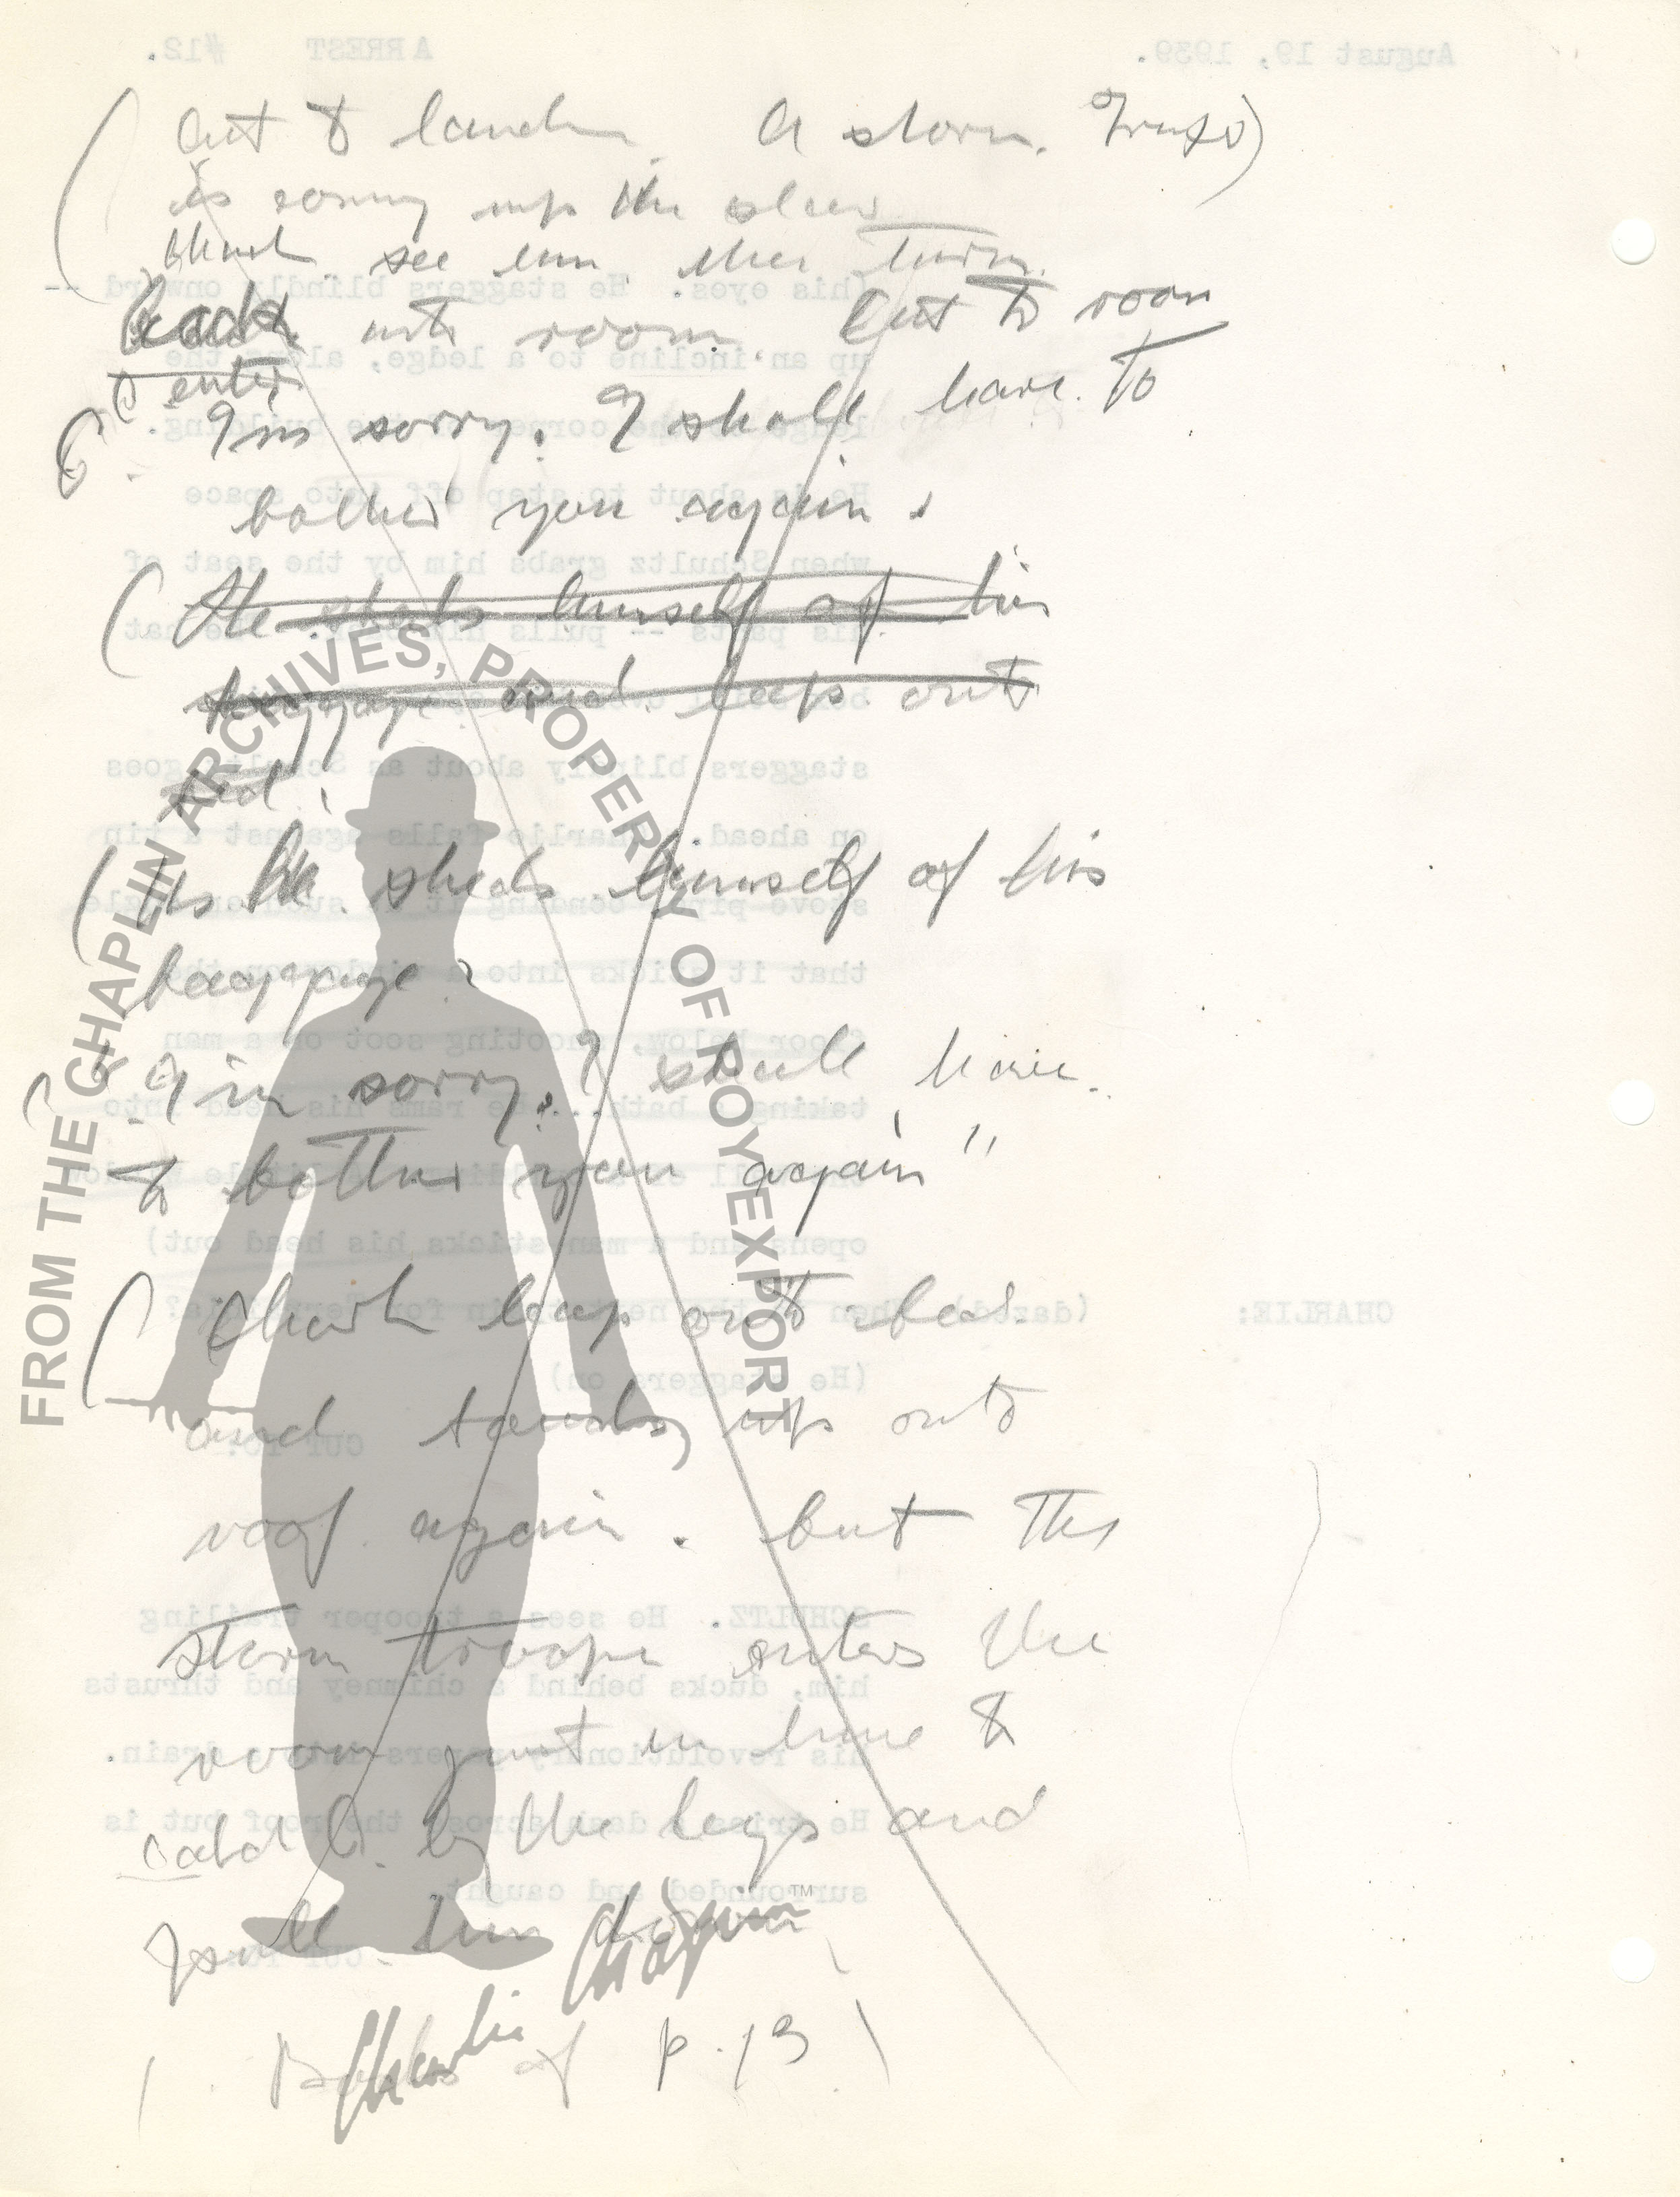 (cut to landin. A storm. Troop)
is coming up the stairs
see him then turn
back into room. Cut to room
C. enters
C. I'm sorry. I shall have to
bother you again.
(He sheds himself of his
baggage and leaps out
bed.
(As he sheds himself of his
baggage.
C "I'm sorry. I shall have.
to bother you again"
(Charlie leap onto bed.
and stands up onto
roof again. but the
storm trooper enters the
room just in time to
catch C. by the legs and
pull him down
( Back of p. 13 )
FROM THE CHAPLIN ARCHIVES, PROPERTY OF ROY EXPORT
Charlie Chaplin™
August 19, 1939. ARREST #12.
(his eyes. He staggers blindly onward --
up an incline to a ledge, along the
ledge to the corner of the building.
He is about to step off into space
when Schultz grabs him by the seat of
his pants -- pulls him back. The hat
staggers blindly about as Schultz goes
on ahead. Charlie falls against a tin
stove pipe bending it at such an angle
that it sticks into a window on the
floor below, shooting soot on a man
taking a bath... He rams his head into
opens and a man sticks his head out)
CHARLIE: (dazed) When is the next train for
(He staggers on)
CUT TO:
SCHULTZ. He sees a trooper trailing
him, ducks behind a chimney and thrusts
his revolutionary papers into a drain.
He tries a dash across the roof but is
surrounded and caught.
CUT TO: